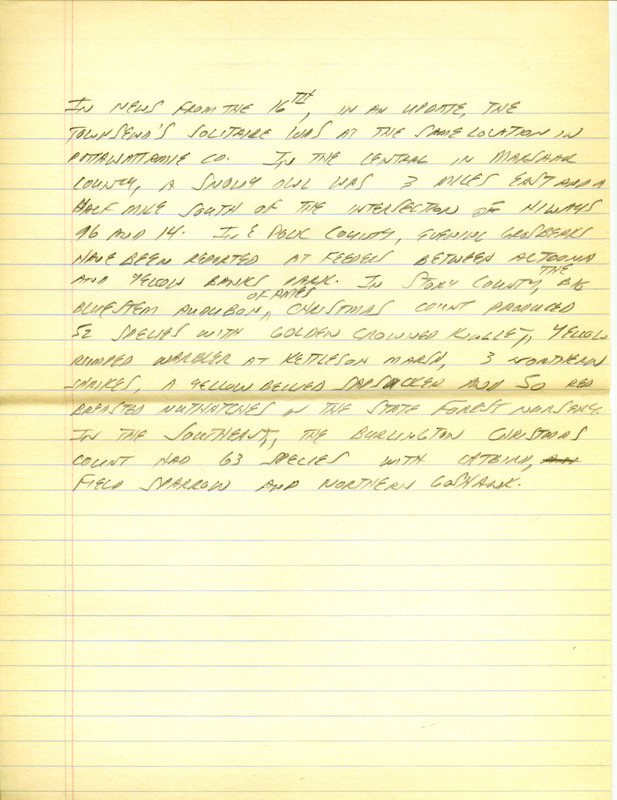 IN NEWS FROM THE 16TH, IN AN UPDATE, THE
TOWNSEND'S SOLITAIRE WAS AT THE SAME LOCATION IN
POTTAWATTAMIE CO. IN THE CENTRAL IN MARSHALL
COUNTY, A SNOWY OWL WAS 3 MILES EAST AND A
HALF MILE SOUTH OF THE INTERSECTION OF HIWAYS
96 AND 14. IN E POLK COUNTY, EVENING GROSBEAKS
HAVE BEEN REPORTED AT FEEDERS BETWEEN ALTOONA
AND YELLOW BANKS PARK. IN STORY COUNTY, THE BIG
BLUESTEM AUDUBON OF AMES, CHRISTMAS COUNT PRODUCED
52 SPECIES WITH GOLDEN CROWNED KINGLET, YELLOW
RUMPED WARBLER AT KETTLESON MARSH, 3 NORTHERN
SHRIKES, A YELLOW BELLIED SAPSUCKER AND 50 RED
BREASTED NUTHATCHES IN THE STATE FOREST NURSERY.
IN THE SOUTHEAST, THE BURLINGTON CHRISTMAS
COUNT HAD 63 SPECIES WITH CATBIRD,
FIELD SPARROW AND NORTHERN GOSHAWK.